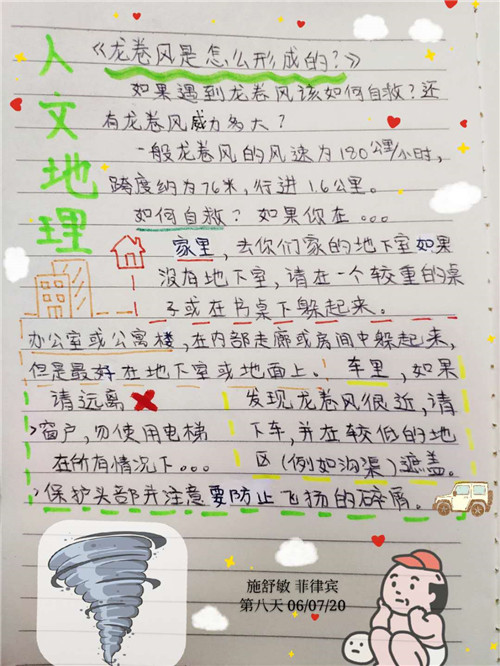 人文地理
《龙卷风是怎么形成的？》
如果遇到龙卷风该如何自救？还
有龙卷风威力多大？
一般龙卷风的风速为180公里/小时，
跨度约为76米，行进1.6公里。
如何自救？如果你在...
家里，去你们家的地下室如果
没有地下室，请在一个较重的桌
子或在书桌下躲起来。
办公室或公寓楼，在内部走廊或房间中躲起来，
但是最好在地下室或地面上。车里，如果
发现龙卷风很近，请
下车，并在较低的地
区（例如沟渠）遮盖。
请远离
窗户，勿使用电梯
在所有情况下...
保护头部并注意要防止飞扬的碎屑。
施舒敏 菲律宾
第八天 06/07/20